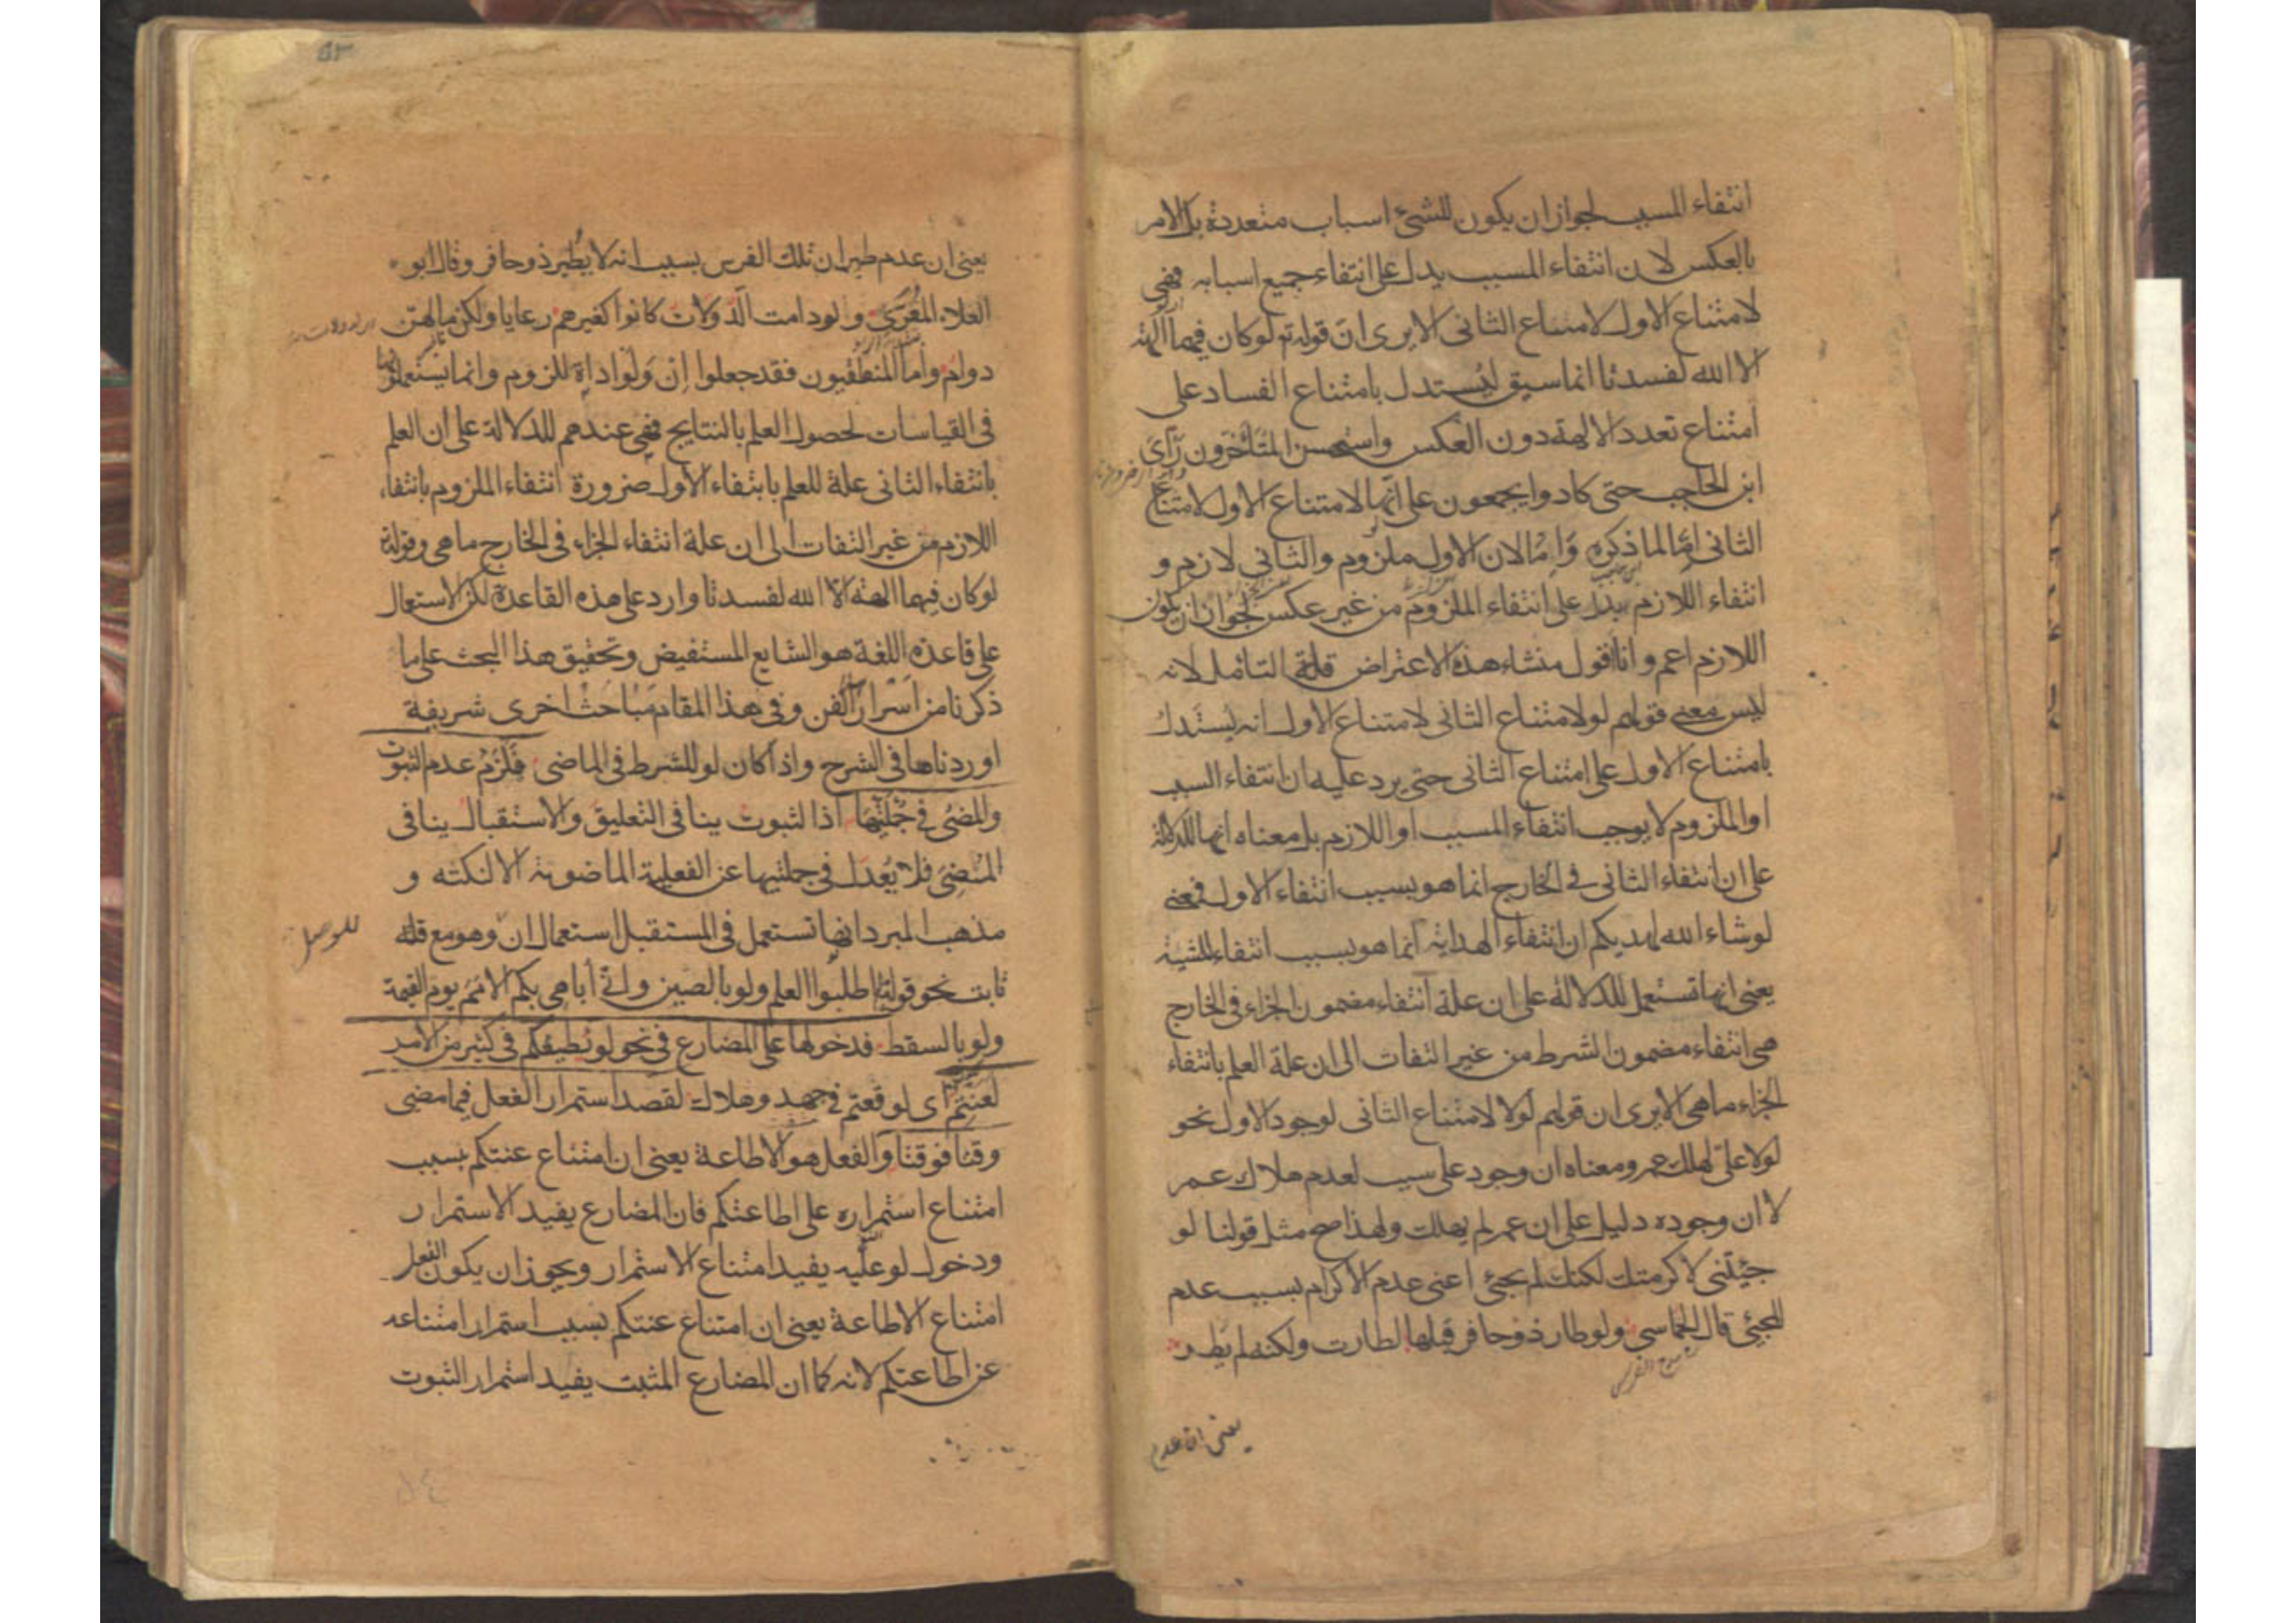 انتفاء المسبب لجواز ان يكون للشئ اسباب متعددة بل الامر
بالعكس لان انتفاء المسبب يدل على انتفاء جميع اسبابه فهي
لامتناع الاول لامتناع الثانى الا يرى ان قوله تع لو كان فيهما آلهة
الا الله لفسدتا انما سيق ليستدل بامتناع الفساد على
امتناع تعدد الالهة دون العكس واستحسن المتأخرون رأى
ابن الحاجب حتى كادوا يجمعون على انها لامتناع الاول لامتناع
الثانى امّا لما ذكره وَامّا لان الاول ملزوم والثانى لازم و
انتفاء اللازم يدل على انتفاء الملزوم من غير عكس لجواز ان يكون
اللازم اعم وانا اقول منشاء هذه الاعتراض قلة التامل لانه
ليس معنى قولهم لو لامتناع الثانى لامتناع الاول انه يُستدل
بامتناع الاول على امتناع الثانى حتى يرد عليه ان انتفاء السبب
او الملزوم لا يوجب انتفاء المسبب او اللازم بل معناه انها للدلالة
على ان انتفاء الثانى فى الخارج انما هو بسبب انتفاء الاول فمعنى
لو شاء الله لهديكم ان انتفاء الهداية انما هو بسبب انتفاء المشية
يعنى انها تستعمل للدلالة على ان علة انتفاء مضمون الجزاء فى الخارج
هى انتفاء مضمون الشرط من غير التفات الى ان علة العلم بانتفاء
الجزاء ما هى الا يرى ان قولهم لولا لامتناع الثانى لوجود الاول نحو
لولا علىّ لهلك عمر ومعناه ان وجود على سبب لعدم هلاك عمر
لا ان وجوده دليل على ان عمر لم يهلك ولهذا صح مثل قولنا لو
جئتنى لاكرمتك لكنك لم تجئ اعنى عدم الاكرام بسبب عدم
المجئ قال الحماسى ولو طار ذو حافر قبلها لطارت ولكنه لم يطر
يعنى ان عدم
يعنى ان عدم طيران تلك الفرس بسبب انه لا يطير ذو حافر وقال ابو
العلاء المقرّى ولو دامت الدّولات كانوا كغيرهم رعايا ولكن مالهن
دوام واما المنطقيون فقد جعلوا اِن وَلو اداة للزوم وانما يستعملونها
فى القياسات لحصول العلم بالنتايج فهى عندهم للدلالة على ان العلم
بانتفاء الثانى علة للعلم بانتفاء الاول ضرورة انتفاء الملزوم بانتفاء
اللازم من غير التفات الى ان علة انتفاء الجزاء فى الخارج ما هى وقوله تع
لو كان فيهما الهة الا الله لفسدتا وارد على هذه القاعدة لكن الاستعمال
على قاعدة اللغة هو الشايع المستفيض وتحقيق هذا البحث على ما
ذكرنا من اَسرار الفن وفى هذا المقام مَباحث اخرى شريفة
اوردناها فى الشرح واذا كان لو للشرط فى الماضى فلزم عدم الثبوت
والمضى فى جملتيها اذ الثبوت ينافى التعليق والاستقبال ينافى
المضى فلا يُعدل فى جملتيها عن الفعلية الماضوية الا لنكتة و
مذهب المبرد انها تستعمل فى المستقبل استعمال ان وهو مع قلة
للوصل
ثابت نحو قوله اطلبوا العلم ولو بالصين وانى أباهى بكم الامم يوم القيمة
ولو بالسقط فدخولها على المضارع فى نحو لو يُطيعكم فى كثير من الامر
لعنتم اى لوقعتم فى جهد وهلاك لقصد استمرار الفعل فيما مضى
وقتا فوقتا والفعل هو الاطاعة يعنى ان امتناع عنتكم بسبب
امتناع استمراره على اطاعتكم فان المضارع يفيد الاستمرار
ودخول لو عليه يفيد امتناع الاستمرار ويجوز ان يكون الفعل
امتناع الاطاعة يعنى ان امتناع عنتكم بسبب استمرار امتناعه
عن اطاعتكم لانه كما ان المضارع المثبت يفيد استمرار الثبوت
٥٤